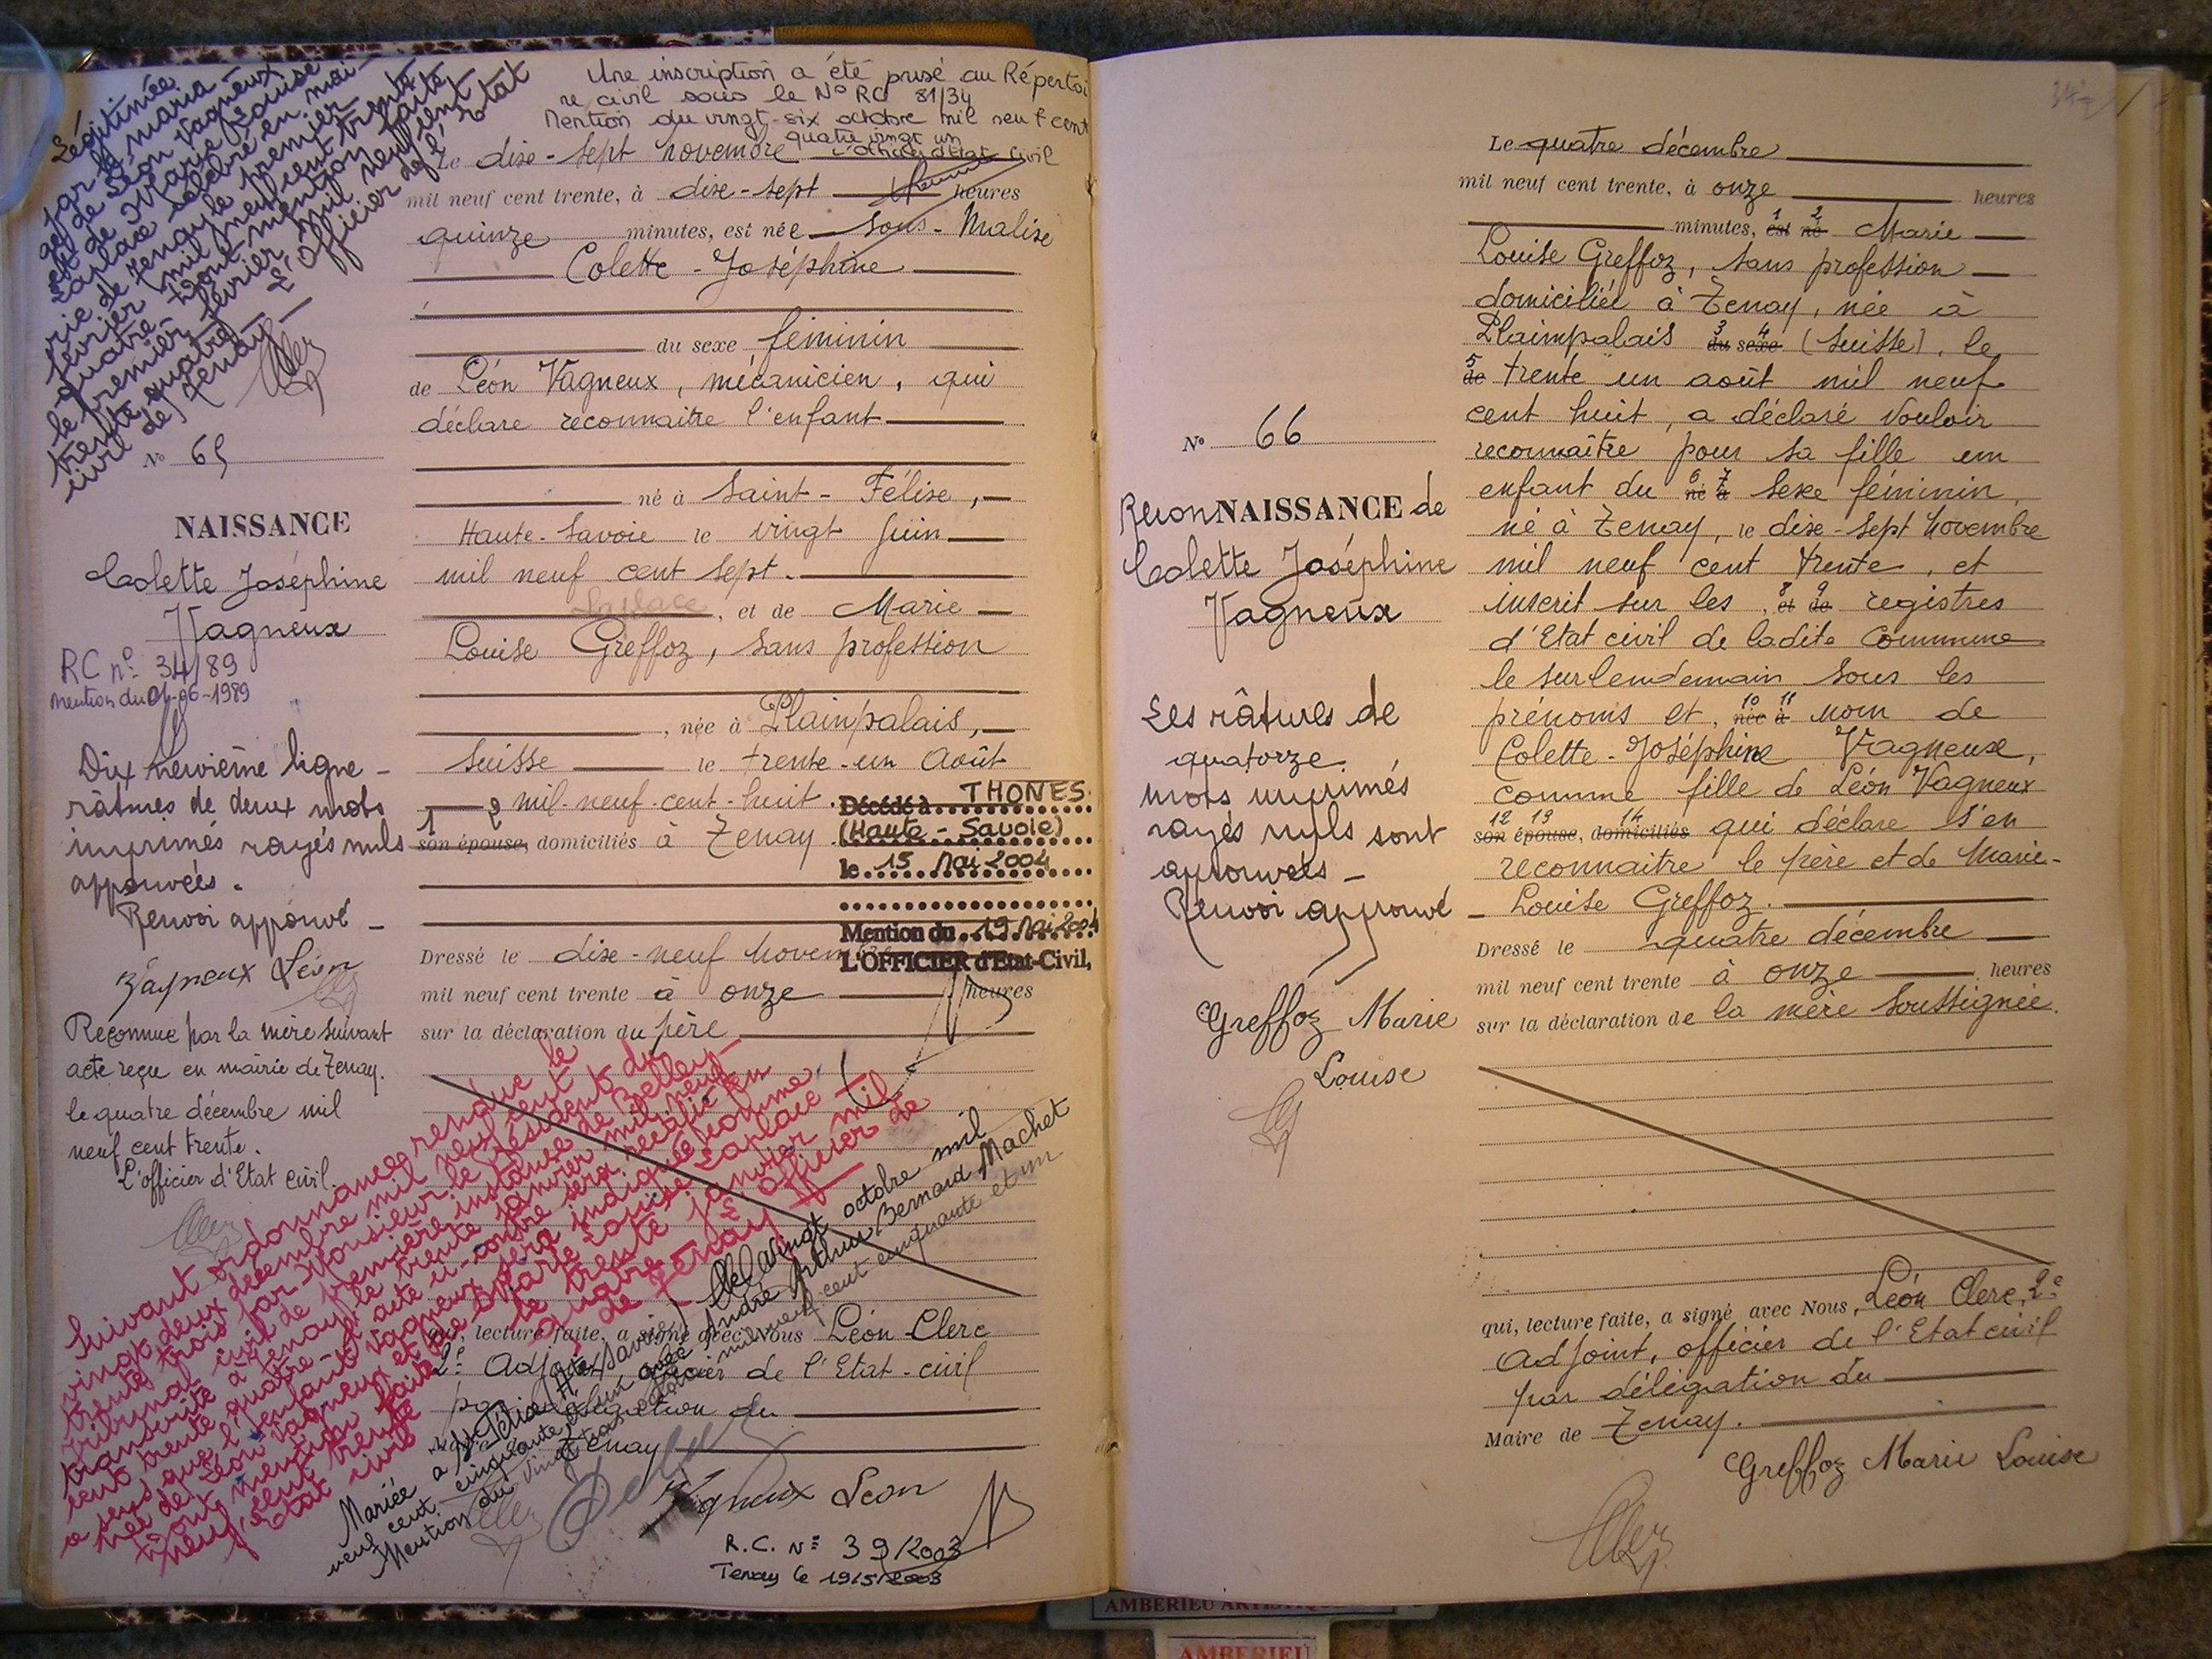 Une inscription a été prise au Répertoi
re civil sous le N° RC 81/34
Mention du vingt-six octobre mil neuf cent
quatre vingt un
L'officier d'Etat Civil
Légitimée
par le maria
ge de Léon Vagneux
et de Marie Louise
Laplace célébré en mai-
rie de Tenay le premier
février mil neuf cent trente
quatre. Dont mention faite
le premier février mil neuf cent
trente quatre. L'officier de l'état
civil de Tenay
N° 65
NAISSANCE
Colette Joséphine
Vagneux
RC n° 34/89
Mention du 01-06-1989
Dix neuvième ligne -
râtures de deux mots
imprimés rayés nuls
approuvées.
Renvoi approuvé -
Vagneux Léon
Reconnue par la mère suivant
acte reçu en mairie de Tenay.
le quatre décembre mil
neuf cent trente.
L'officier d'Etat civil.
Le dix-sept novembre
mil neuf cent trente, à dix-sept heures
quinze minutes, est née sous-Malise
Colette-Joséphine
du sexe féminin
de Léon Vagneux, mécanicien, qui
déclare reconnaitre l'enfant
né à Saint-Félix,
Haute-Savoie le vingt Juin
mil neuf cent sept.
Laplace, et de Marie
Louise Greffoz, sans profession
, née à Plainpalais,
Suisse le trente-un Août
1 2 mil-neuf-cent-huit.
son épouse, domiciliés à Tenay.
Décédé à THONES
(Haute-Savoie)
le 15 Mai 2004
Mention du 19 Mai 2004
L'OFFICIER d'Etat-Civil,
Dressé le dix-neuf novembre
mil neuf cent trente à onze heures
sur la déclaration du père
Suivant ordonnance rendue le
vingt deux décembre mil neuf cent
trente trois par Monsieur le Président du
tribunal civil de première instance de Belley
transcrite à Tenay le trente janvier mil neuf
cent trente quatre, l'acte ci-contre sera rectifié en
ce sens que l'enfant Vagneux sera indiquée comme
née de Léon Vagneux et de Marie Louise Laplace
Dont mention faite le trente janvier mil
neuf cent trente quatre. L'officier de
l'état civil de Tenay
Mariée à St Félix (Hte Savoie) le vingt octobre mil
neuf cent cinquante et un avec André Arthur Bernard Machet
Mention du vingt trois octobre mil neuf cent cinquante et un
qui, lecture faite, a signé avec Nous Léon Clerc
2e Adjoint, officier de l'Etat-civil
par délégation du
Maire de Tenay
Vagneux Léon
R.C. N° 39/2003
Tenay le 19/5/2003
N° 66
ReconNAISSANCE de
Colette Joséphine
Vagneux
Les râtures de
quatorze
mots imprimés
rayés nuls sont
approuvées -
Renvoi approuvé -
Greffoz Marie
Louise
Le quatre décembre
mil neuf cent trente, à onze heures
1 2
minutes, est né Marie
Louise Greffoz, sans profession
domiciliée à Tenay, née à
3 4
Plaimpalais du sexe (Suisse), le
5
de trente un août mil neuf
cent huit, a déclaré vouloir
reconnaître pour sa fille un
6 7
enfant du né à sexe féminin,
né à Tenay, le dix-sept novembre
mil neuf cent trente, et
8 9
inscrit sur les, et de registres
d'Etat civil de ladite Commune
le surlendemain sous les
10 11
prénoms et, née à nom de
Colette-Joséphine Vagneux,
comme fille de Léon Vagneux
12 13 14
son épouse, domiciliés qui déclare s'en
reconnaitre le père et de Marie-
Louise Greffoz.
Dressé le quatre décembre
mil neuf cent trente à onze heures
sur la déclaration de la mère soussignée.
qui, lecture faite, a signé avec Nous, Léon Clerc, 2e
adjoint, officier de l'Etat civil
par délégation du
Maire de Tenay.
Greffoz Marie Louise
AMBERIEU ARTISTIQU
AMBERIEU